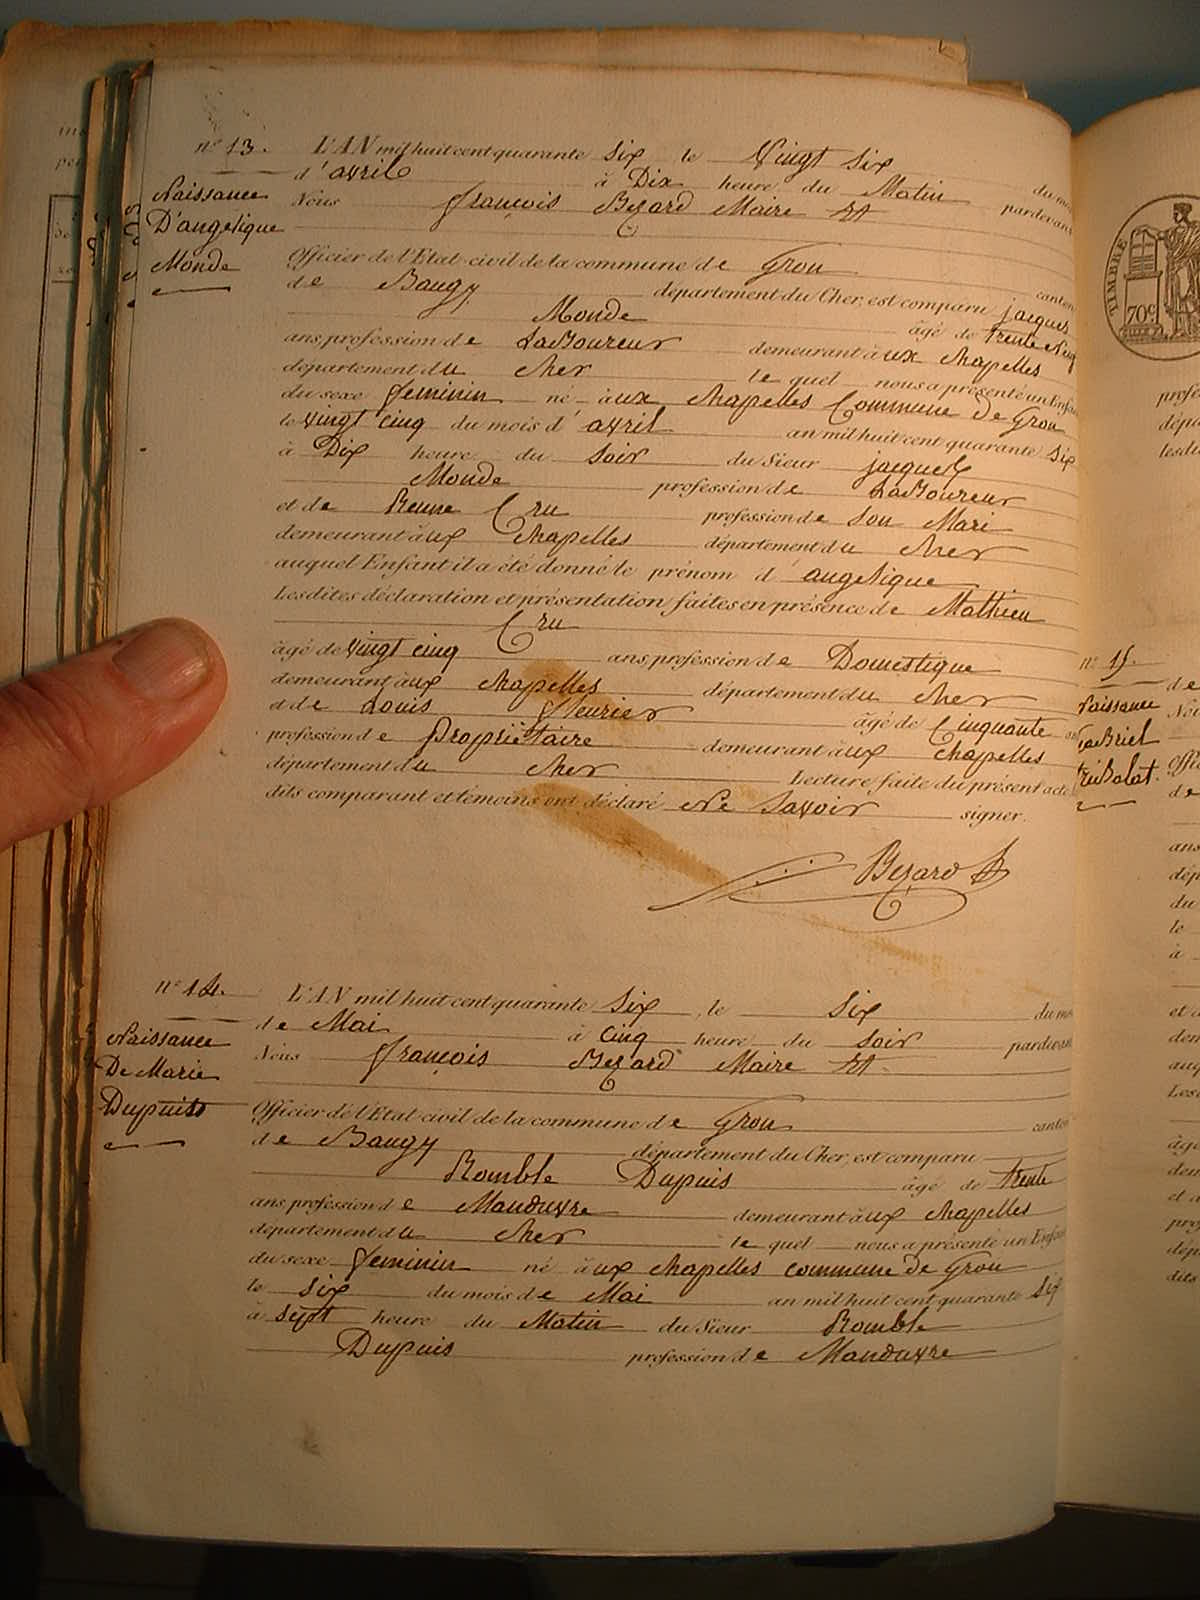 n° 13. L'AN mil huit cent quarante Six le Vingt Six du mois
d'avril à Dix heure du Matin pardevant
Naissance
D'angelique
Monde
Nous François Bezard Maire Et
Officier de l'Etat-civil de la commune de Grou canton
de Baugy département du Cher, est comparu jacques
Monde âgé de trente neuf
ans, profession de LaBoureur demeurant à ux Chapelles
département du Cher le quel nous a présenté un Enfant
du sexe feminin né à ux Chapelles Commune de Grou
le vingt cinq du mois d'avril an mil huit cent quarante Six
à Dix heure du Soir du Sieur jacques
Monde profession de LaBoureur
et de Reune Cru profession de Son Mari
demeurant à ux Chapelles département du Cher
auquel Enfant il a été donné le prénom d'angelique
Lesdites déclaration et présentation faites en présence de Mathieu
Cru
âgé de vingt cinq ans, profession de Domestique
demeurant à ux Chapelles département du Cher
et de Louis fleurier âgé de Cinquante ans
profession de Propriétaire demeurant à ux Chapelles
département du Cher Lecture faite du présent acte
dits comparant et témoins ont déclaré Ne Savoir signer.
Bezard
n° 14. L'AN mil huit cent quarante Six, le Six du mois
de Mai à Cinq heure du Soir pardevant
Naissance
De Marie
Dupuis
Nous François Bezard Maire Et
Officier de l'Etat-civil de la commune de Grou canton
de Baugy département du Cher, est comparu
Romble Dupuis âgé de trente
ans profession de Manduvre demeurant à ux Chapelles
département du Cher le quel nous a présenté un Enfant
du sexe feminin né à ux Chapelles commune de Grou
le Six du mois de Mai an mil huit cent quarante Six
à Sept heure du Matin du Sieur Romble
Dupuis profession de Manduvre
TIMBRE
70c
n° 15.
Naissance